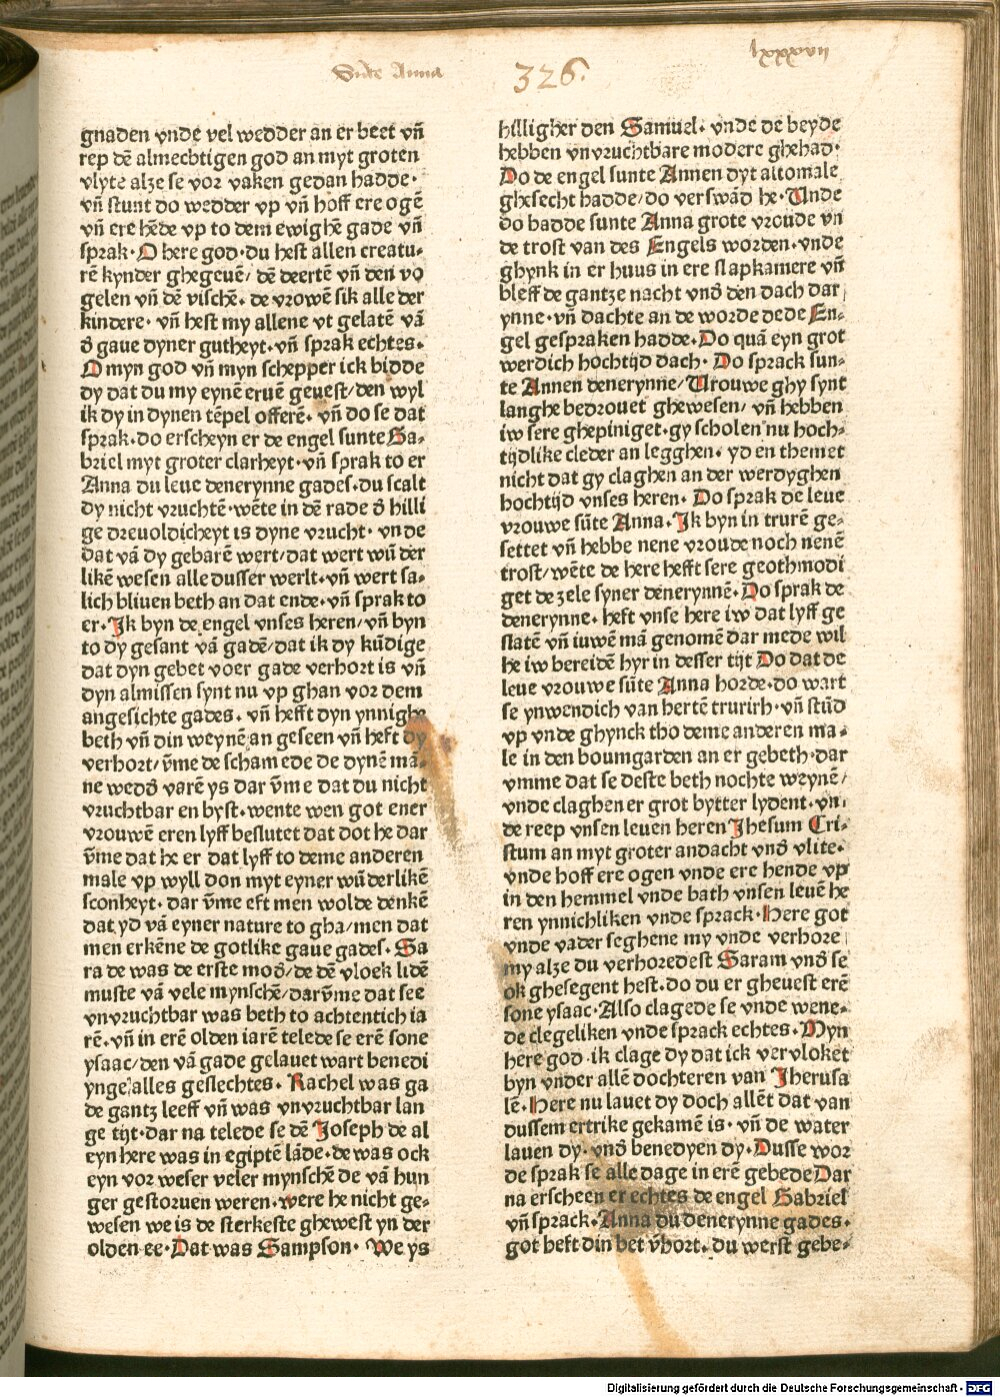 Sute Anna
326.
lxxxvii
gnaden vnde vel wedder an er beet vñ
rep dē almechtigen god an myt groten
vlyte alze se vor vaken gedan hadde·
vñ stunt do wedder vp vñ hoff ere ogē
vñ ere hēde vp to dem ewighē gade vñ
sprak· O here god· du hest allen creatu-
rē kynder ghegeuē/ dē deertē vñ den vo
gelen vñ dē vischē· de vrowē sik alle der
kindere· vñ hest my allene vt gelatē vā
d̄ gaue dyner gutheyt· vñ sprak echtes·
O myn god vñ myn schepper ick bidde
dy dat du my eynē eruē geuest/ den wyl
ik dy in dynen tēpel offerē· vñ do se dat
sprak· do erscheyn er de engel sunte Ga-
briel myt groter clarheyt· vñ sprak to er
Anna du leue denerynne gades· du scalt
dy nicht vruchtē· wēte in dē rade d̄ hilli
ge dreuoldicheyt is dyne vrucht· vnde
dat vā dy gebarē wert/ dat wert wūder
likē wesen alle dusser werlt· vñ wert sa-
lich bliuen beth an dat ende· vñ sprak to
er· Ik byn de engel vnses heren/ vñ byn
to dy gesant vā gadē/ dat ik dy kūdige
dat dyn gebet voer gade verhort is vñ
dyn almissen synt nu vp ghan vor dem
angesichte gades· vñ hefft dyn ynnighe
beth vñ din weynē an geseen vñ heft dy
verhort/ v̄me de scham ede de dynē mā-
ne wedd̄ varē ys dar v̄me dat du nicht
vruchtbar en byst· wente wen got ener
vrouwē eren lyff beslutet dat dot he dar
v̄me dat he er dat lyff to deme anderen
male vp wyll don myt eyner wūderlikē
sconheyt· dar v̄me eft men wolde dēnkē
dat yd vā eyner nature to gha/ men dat
men erkēne de gotlike gaue gades· Sa
ra de was de erste mod̄/ de dē vloek lidē
muste vā vele mynschē/ darv̄me dat see
vnvruchtbar was beth to achtentich ia
rē· vñ in erē olden iarē telede se erē sone
ysaac/ den vā gade gelauet wart benedi
ynge alles geslechtes· Rachel was ga
de gantz leeff vñ was vnvruchtbar lan
ge tijt· dar na telede se dē Joseph de al
eyn here was in egiptē lāde· de was ock
eyn vor weser veler mynschē de vā hun
ger gestoruen weren· were he nicht ge-
wesen we is de sterkeste ghewest yn der
olden ee· Dat was Sampson· We ys
hilligher den Samuel· vnde de beyde
hebben vnvruchtbare modere ghehad·
Do de engel sunte Annen dyt altomale
ghesecht hadde/ do verswād he· Unde
do hadde sunte Anna grote vroude vñ
de trost van des Engels worden· vnde
ghynk in er huus in ere slapkamere vñ
bleff de gantze nacht vnd̄ den dach dar
ynne· vñ dachte an de worde dede En-
gel gespraken hadde· Do quā eyn grot
werdich hochtijd dach· Do sprack sun-
te Annen denerynne/ Vrouwe ghy synt
langhe bedrouet ghewesen/ vñ hebben
iw sere ghepiniget· gy scholen nu hoch-
tijdlike cleder an legghen· yd en themet
nicht dat gy claghen an der werdyghen
hochtijd vnses heren· Do sprak de leue
vrouwe sūte Anna· Ik byn in trurē ge-
settet vñ hebbe nene vroude noch nenē
trost/ wēte de here hefft sere geothmodi
get de zele syner denerynnē· Do sprak de
denerynne· heft vnse here iw dat lyff ge
slatē vñ iuwē mā genomē dar mede wil
he iw bereidē hyr in desser tijt Do dat de
leue vrouwe sūte Anna horde· do wart
se ynwendich van hertē trurirh· vñ stūd
vp vnde ghynck tho deme anderen ma-
le in den boumgarden an er gebeth· dar
vmme dat se deste beth nochte weynē/
vnde claghen er grot bytter lydent· vñ
de reep vnsen leuen heren Jhesum Cri-
stum an myt groter andacht vnd̄ vlite·
vnde hoff ere ogen vnde ere hende vp
in den hemmel vnde bath vnsen leuē he
ren ynnichliken vnde sprack· Here got
vnde vader seghene my vnde verhore
my alze du verhoredest Saram vnd̄ se
ok ghesegent hest· do du er gheuest erē
sone ysaac· Also clagede se vnde wene-
de clegeliken vnde sprack echtes· Myn
here god· ik clage dy dat ick vervloket
byn vnder allē dochteren van Jherusa
lē· Here nu lauet dy doch allēt dat van
dussem ertrike gekamē is· vñ de water
lauen dy· vnd̄ benedyen dy· Dusse wor
de sprak se alle dage in erē gebede Dar
na erscheen er echtes de engel Gabriel
vñ sprack· Anna du denerynne gades·
got heft din bet v̄hort· du werst gebe-
Digitalisierung gefördert durch die Deutsche Forschungsgemeinschaft - DFG